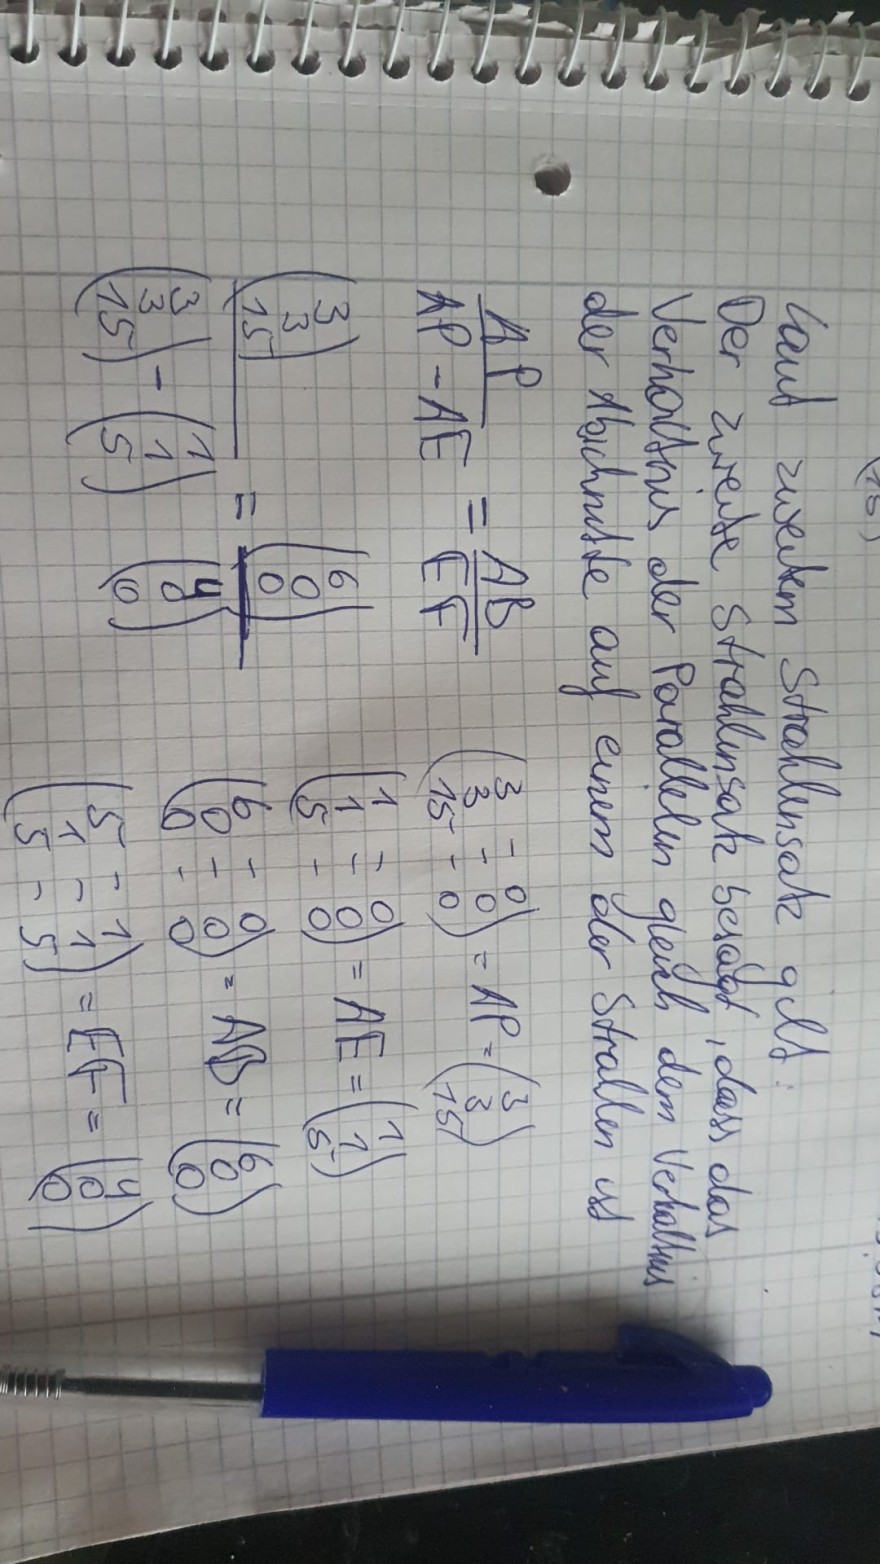 (15)
Laut zweitem Strahlensatz gilt:
Der zweite Strahlnsatz besagt, dass das
Verhältnis der Parallelen gleich dem Verhältnis
der Abschnitte auf einem der Strallen ist
AP / AP - AE = AB / EF
(3 3 15) / (3 3 15) - (1 1 5) = (6 0 0) / (4 0 0)
(3 - 0 3 - 0 15 - 0) = AP = (3 3 15)
(1 - 0 1 - 0 5 - 0) = AE = (1 1 5)
(6 - 0 0 - 0 0 - 0) = AB = (6 0 0)
(5 - 1 1 - 1 5 - 5) = EF = (4 0 0)